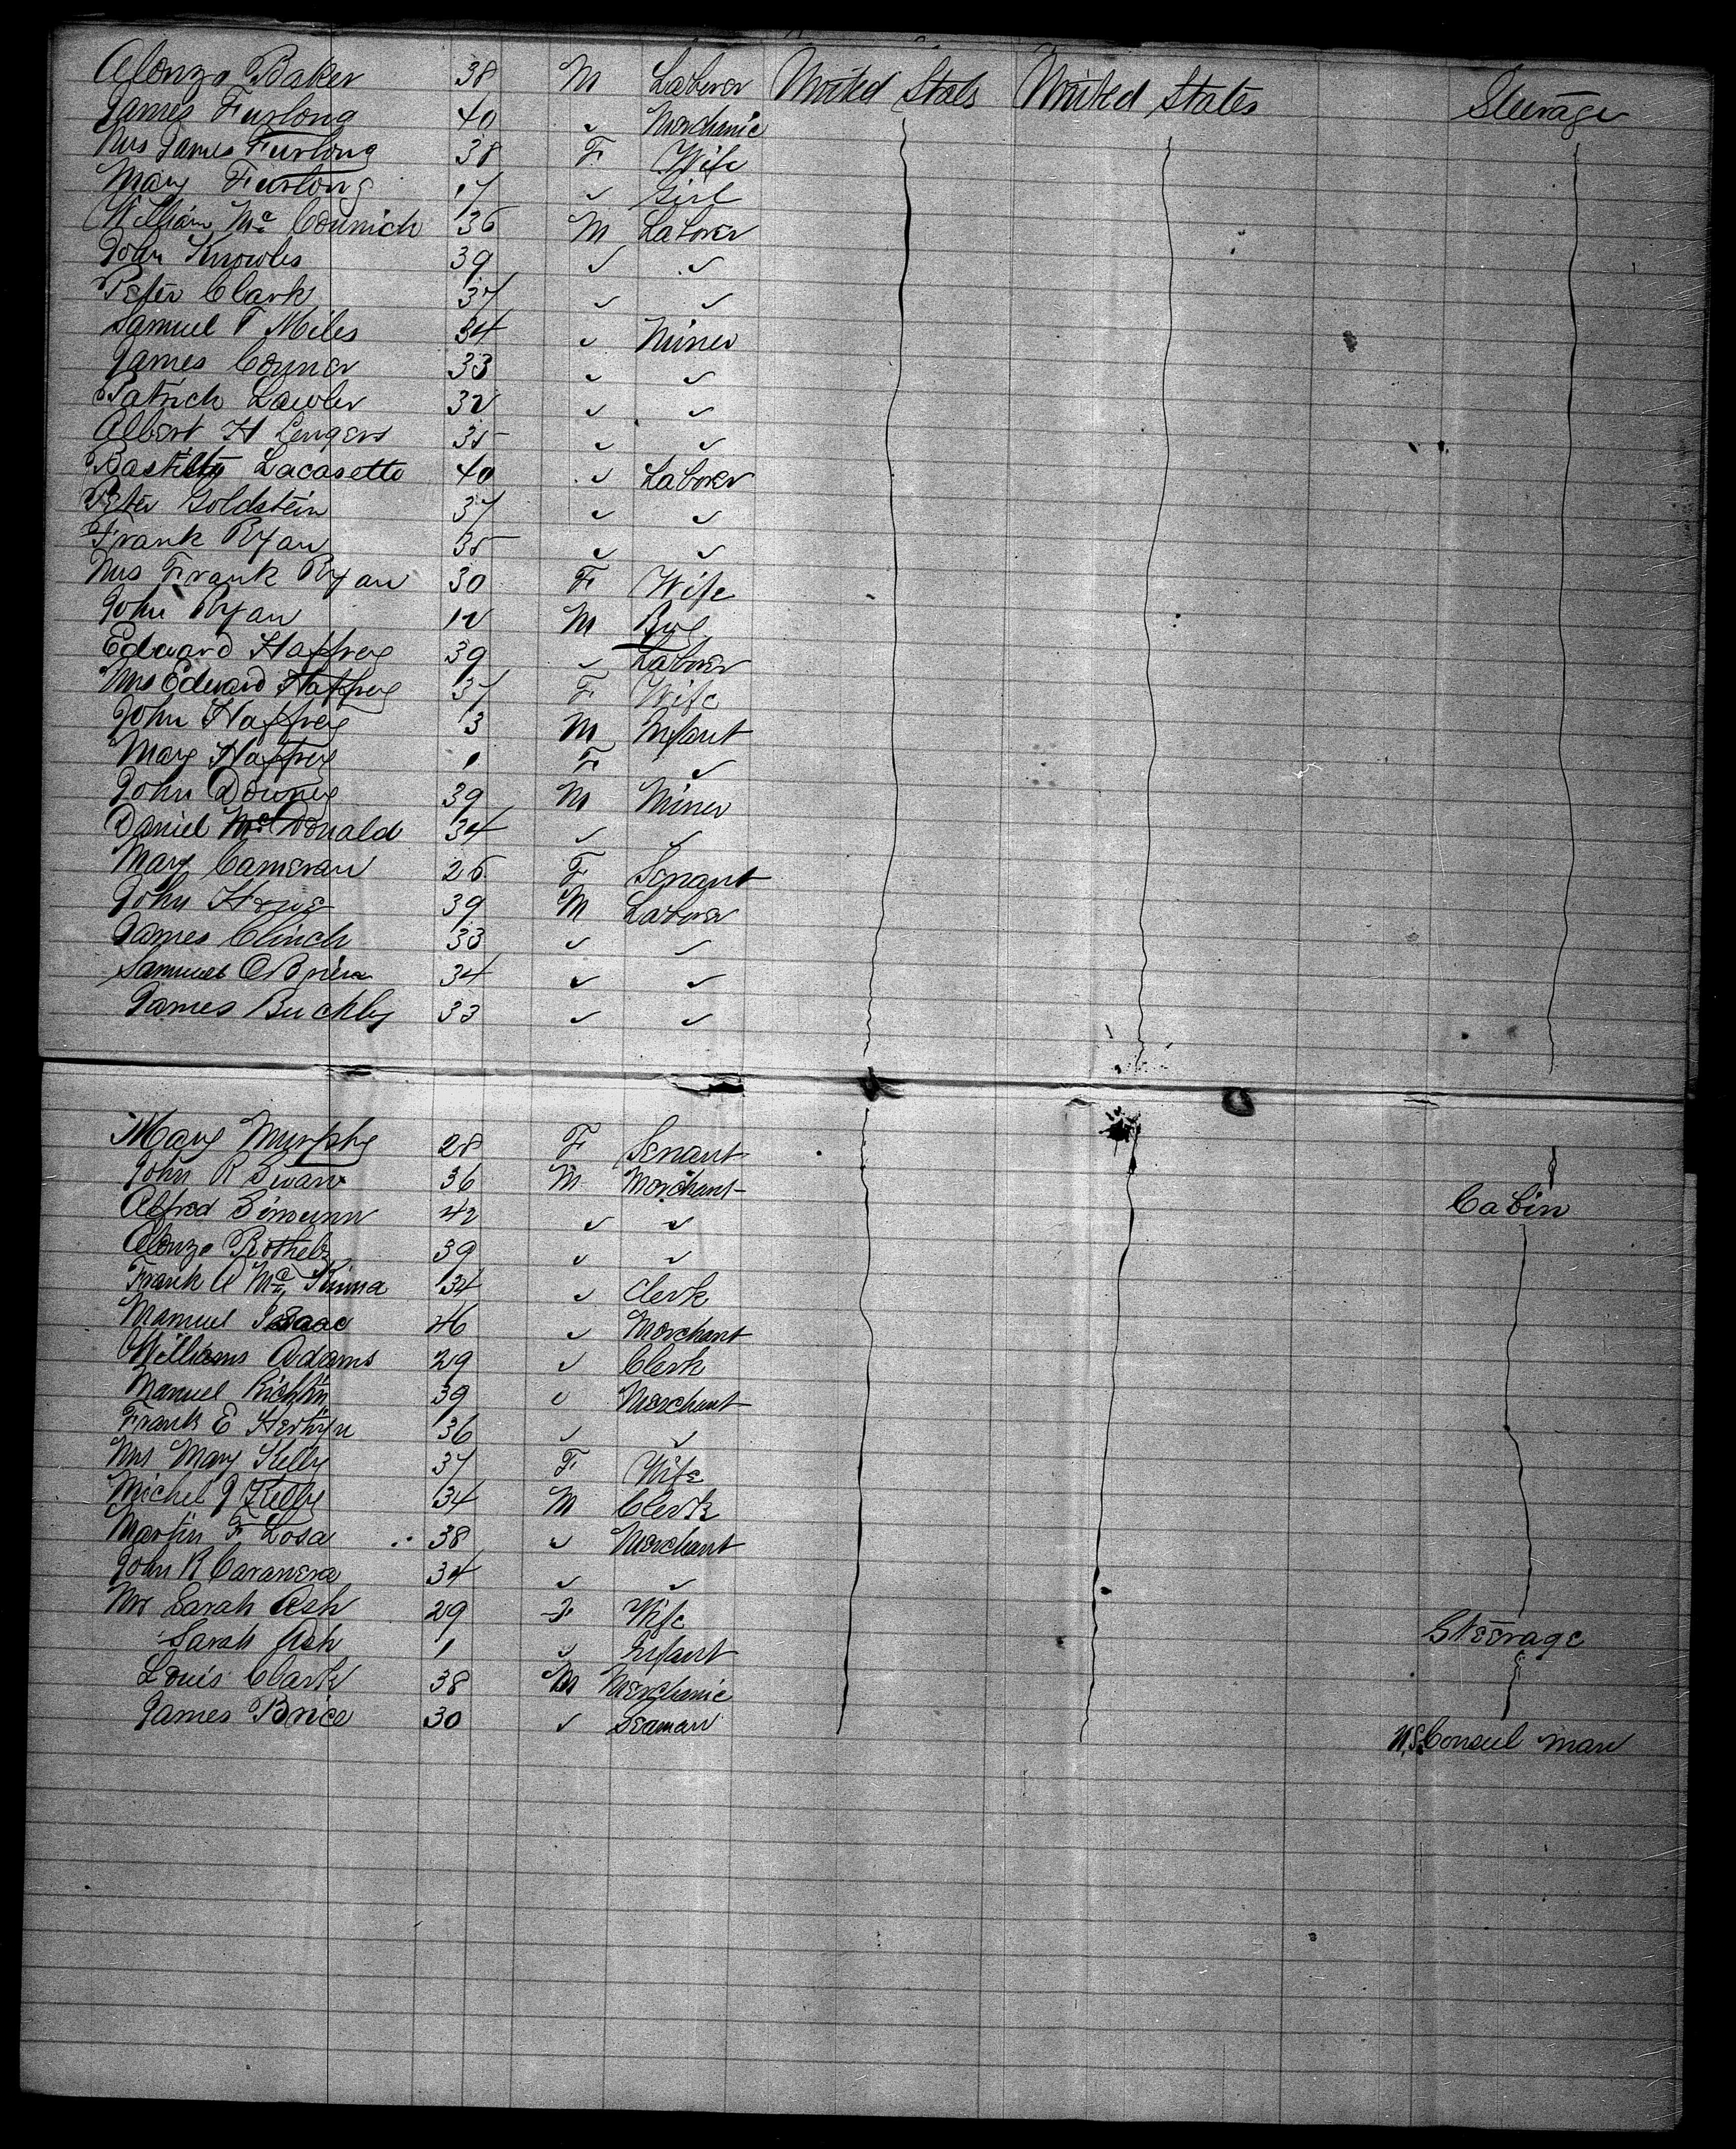 Alonzo Baker 38 M Laborer United Stats United States Steerage
James Furlong 40 ✓ Merchanic
Mrs James Furlong 38 F Wife
Mary Furlong 17 ✓ Girl
William Mc Connich 36 M Laborer
John Knowles 39 ✓ ✓
Peter Clark 37 ✓ ✓
Samuel T Miles 34 ✓ Miner
James Conner 33 ✓ ✓
Patrick Lawler 32 ✓ ✓
Albert H Lengers 35 ✓ ✓
Lacasette 40 ✓ Laborer
Peter Goldstein 37 ✓ ✓
Frank Ryan 35 ✓ ✓
Mrs Frank Ryan 30 F Wife
John Ryan 12 M Boy
Edward Haffrey 39 ✓ Laborer
Mrs Edward Haffrey 37 F Wife
John Haffrey 3 M Infant
Mary Haffrey 1 F ✓
John Downey 39 M Miner
Daniel McDonald 34 ✓ ✓
Mary Cameran 26 F Serant
John 39 M Laborer
James Clinch 33 ✓ ✓
Samuel OBrien 34 ✓ ✓
James Buckley 33 ✓ ✓
Mary Murphy 28 F Serant
John R Swan 36 M Merchant Cabin
Alfred 42 ✓ ✓
Alonzo 39 ✓ ✓
Frank A Mc Kinna 34 ✓ Clerk
Manuel Isaac 46 ✓ Merchant
Williams Adams 29 ✓ Clerk
Manuel Richtin 39 ✓ Merchant
Frank E 36 ✓ ✓
Mrs Mary Kelly 37 F Wife
Michel J Kelly 34 M Clerk
Martin F Losa 38 ✓ Merchant
John R Caranera 34 ✓ ✓
Mrs Sarah Ash 29 F Wife Steerage
Sarah Ash 1 ✓ Infant
Louis Clark 38 M Merchanic
James Brice 30 ✓ Seaman U.S. Consul man